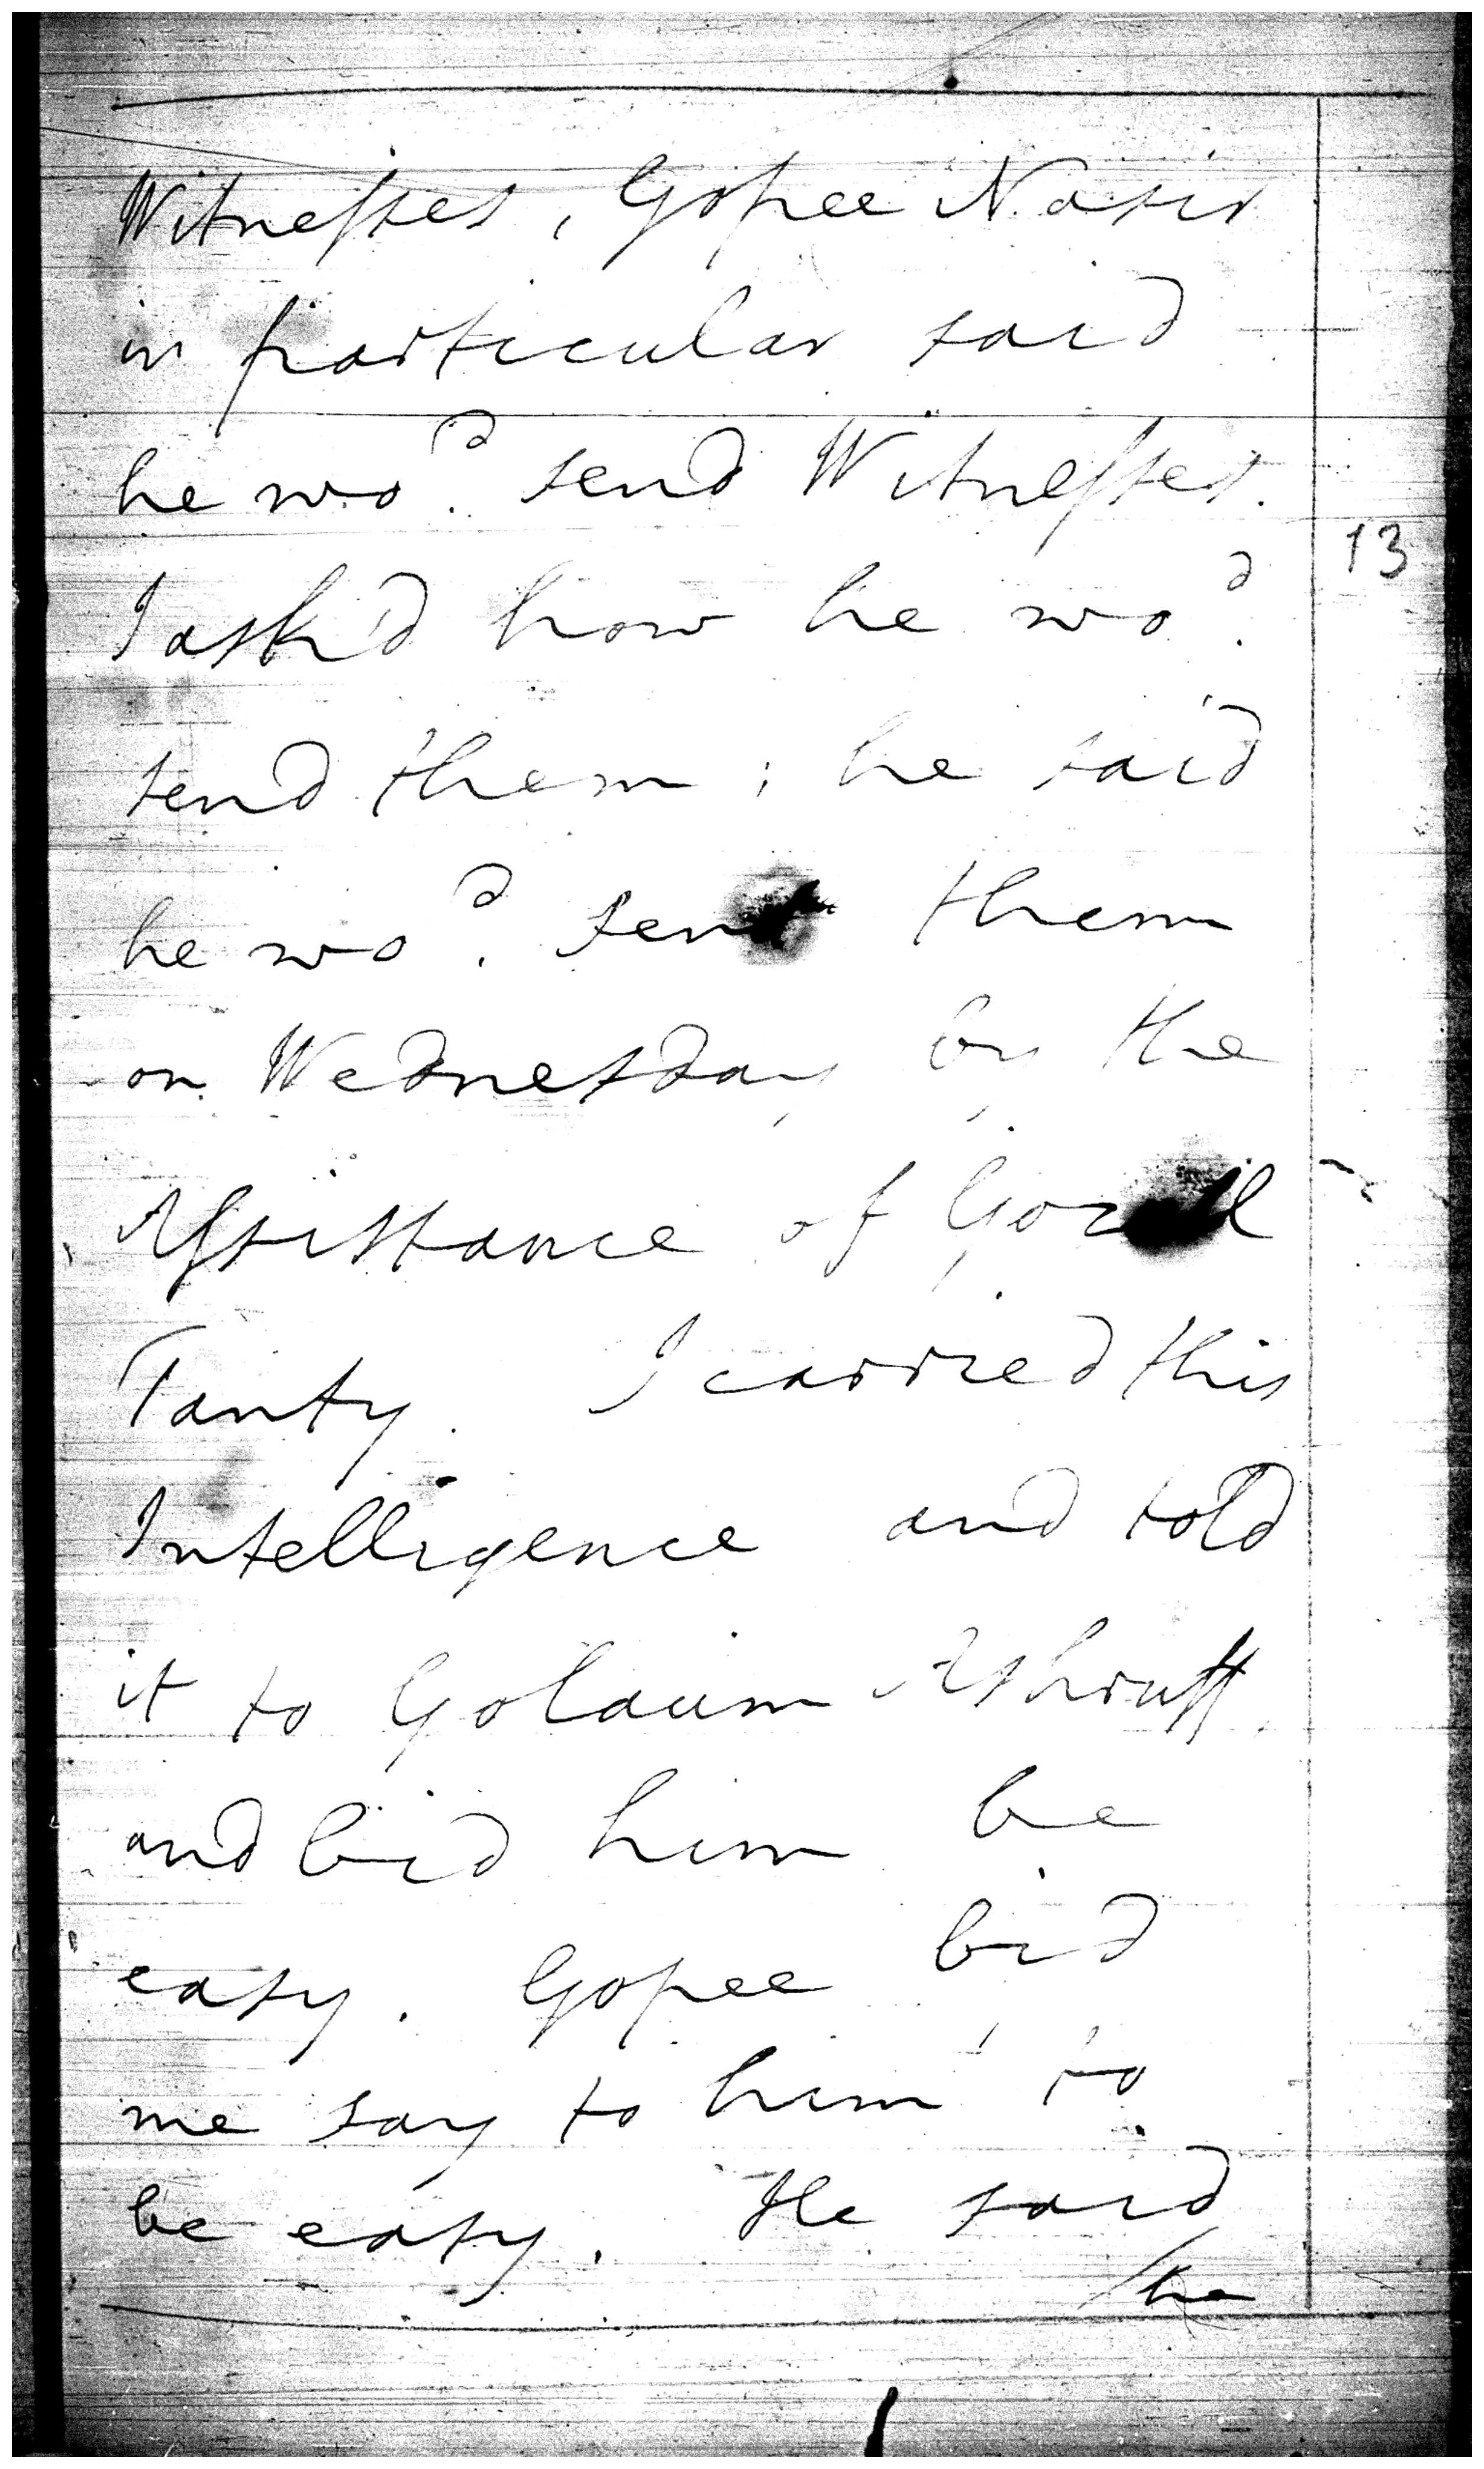 Witnesses, Gopee Nasir
in particular said
he wo.d send Witnesses.
13
I ask'd how he wo.d
send them; he said
he wo.d send them
on Wednesday by the
Assistance of
Tanty. I carried this
Intelligence and told
it to Golaum Ashruff
and bid him be
easy. Gopee bid
me say to him to
be easy. He said
he